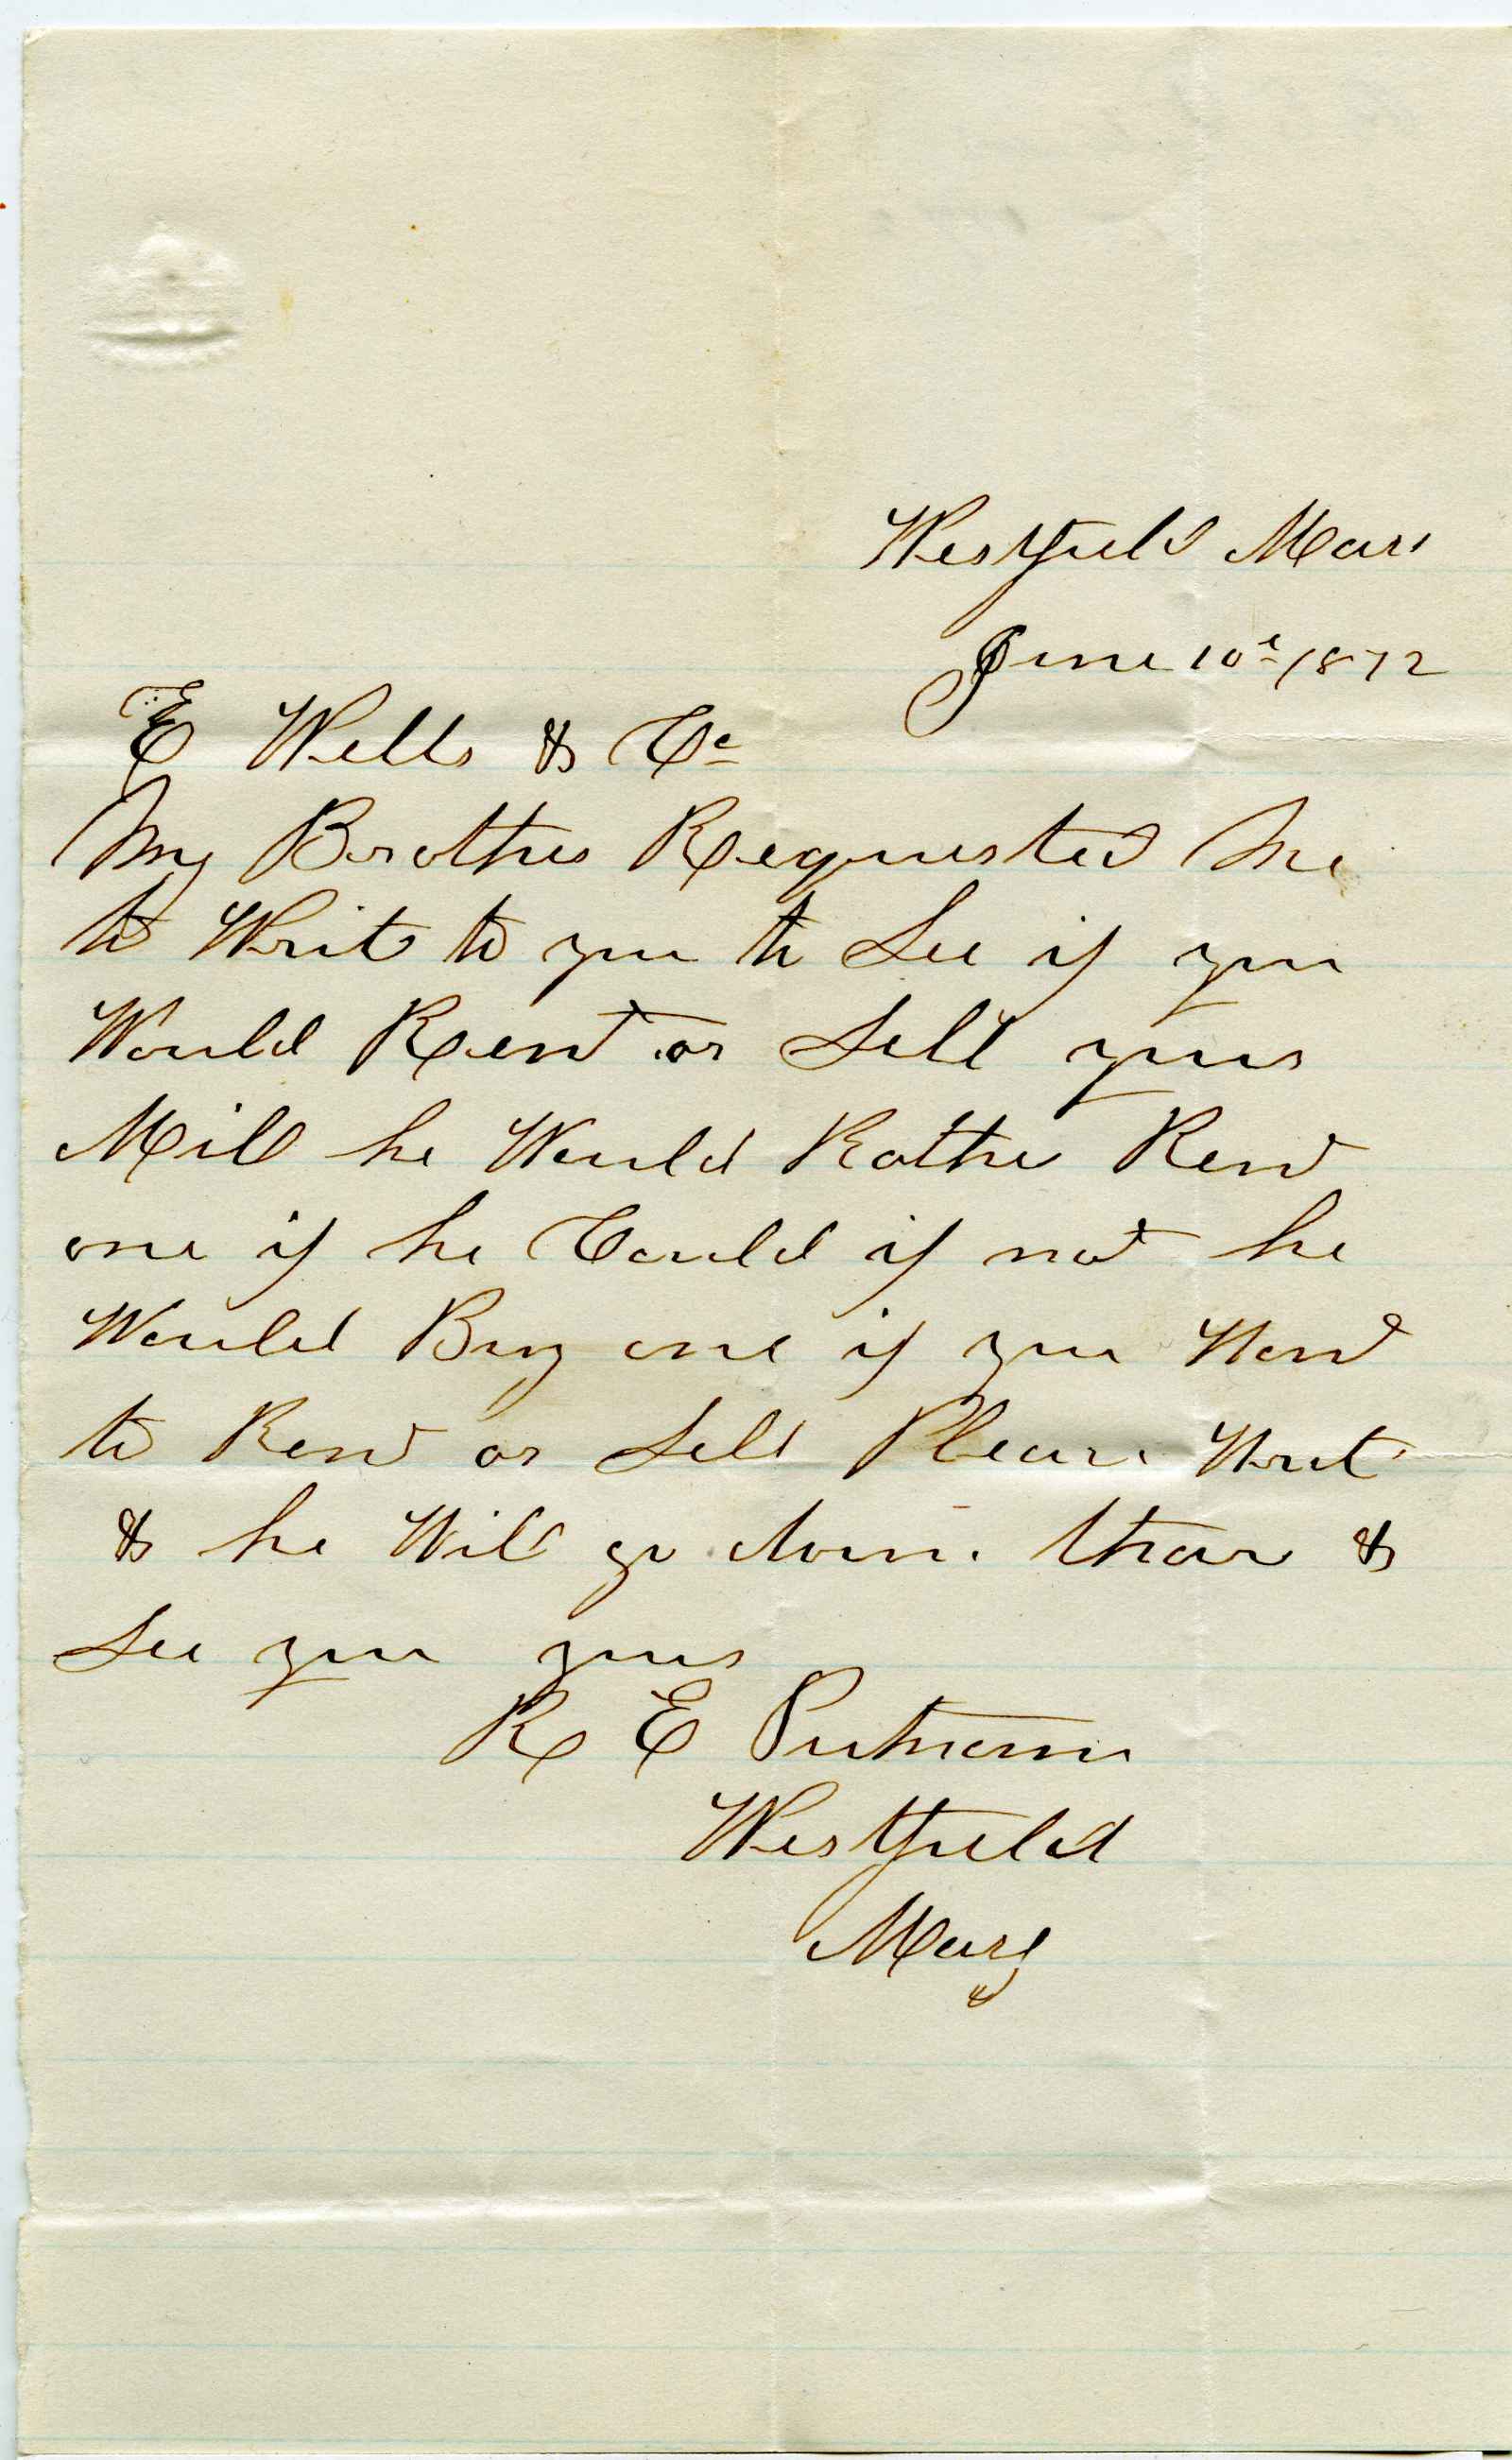 Westfield Mass
June 10th 1872
E Wells & Co
My Brother Requested Me
to Write to you to See if you
Would Rent or Sell your
Mill he Would Rather Rent
one if he Could if not he
Would Buy one if you Want
to Rent or Sell Please Write
& he Will go down thare &
See you yours
R E Putnam
Westfield
Mass